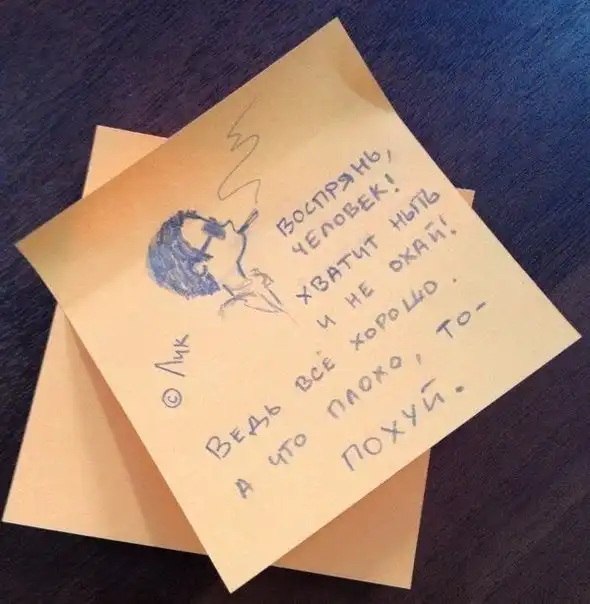 ВОСПРЯНЬ,
ЧЕЛОВЕК!
ХВАТИТ НЫТЬ
И НЕ ОХАЙ!
ВЕДЬ ВСЁ ХОРОШО.
А ЧТО ПЛОХО, ТО-
ПОХУЙ.
© Лик